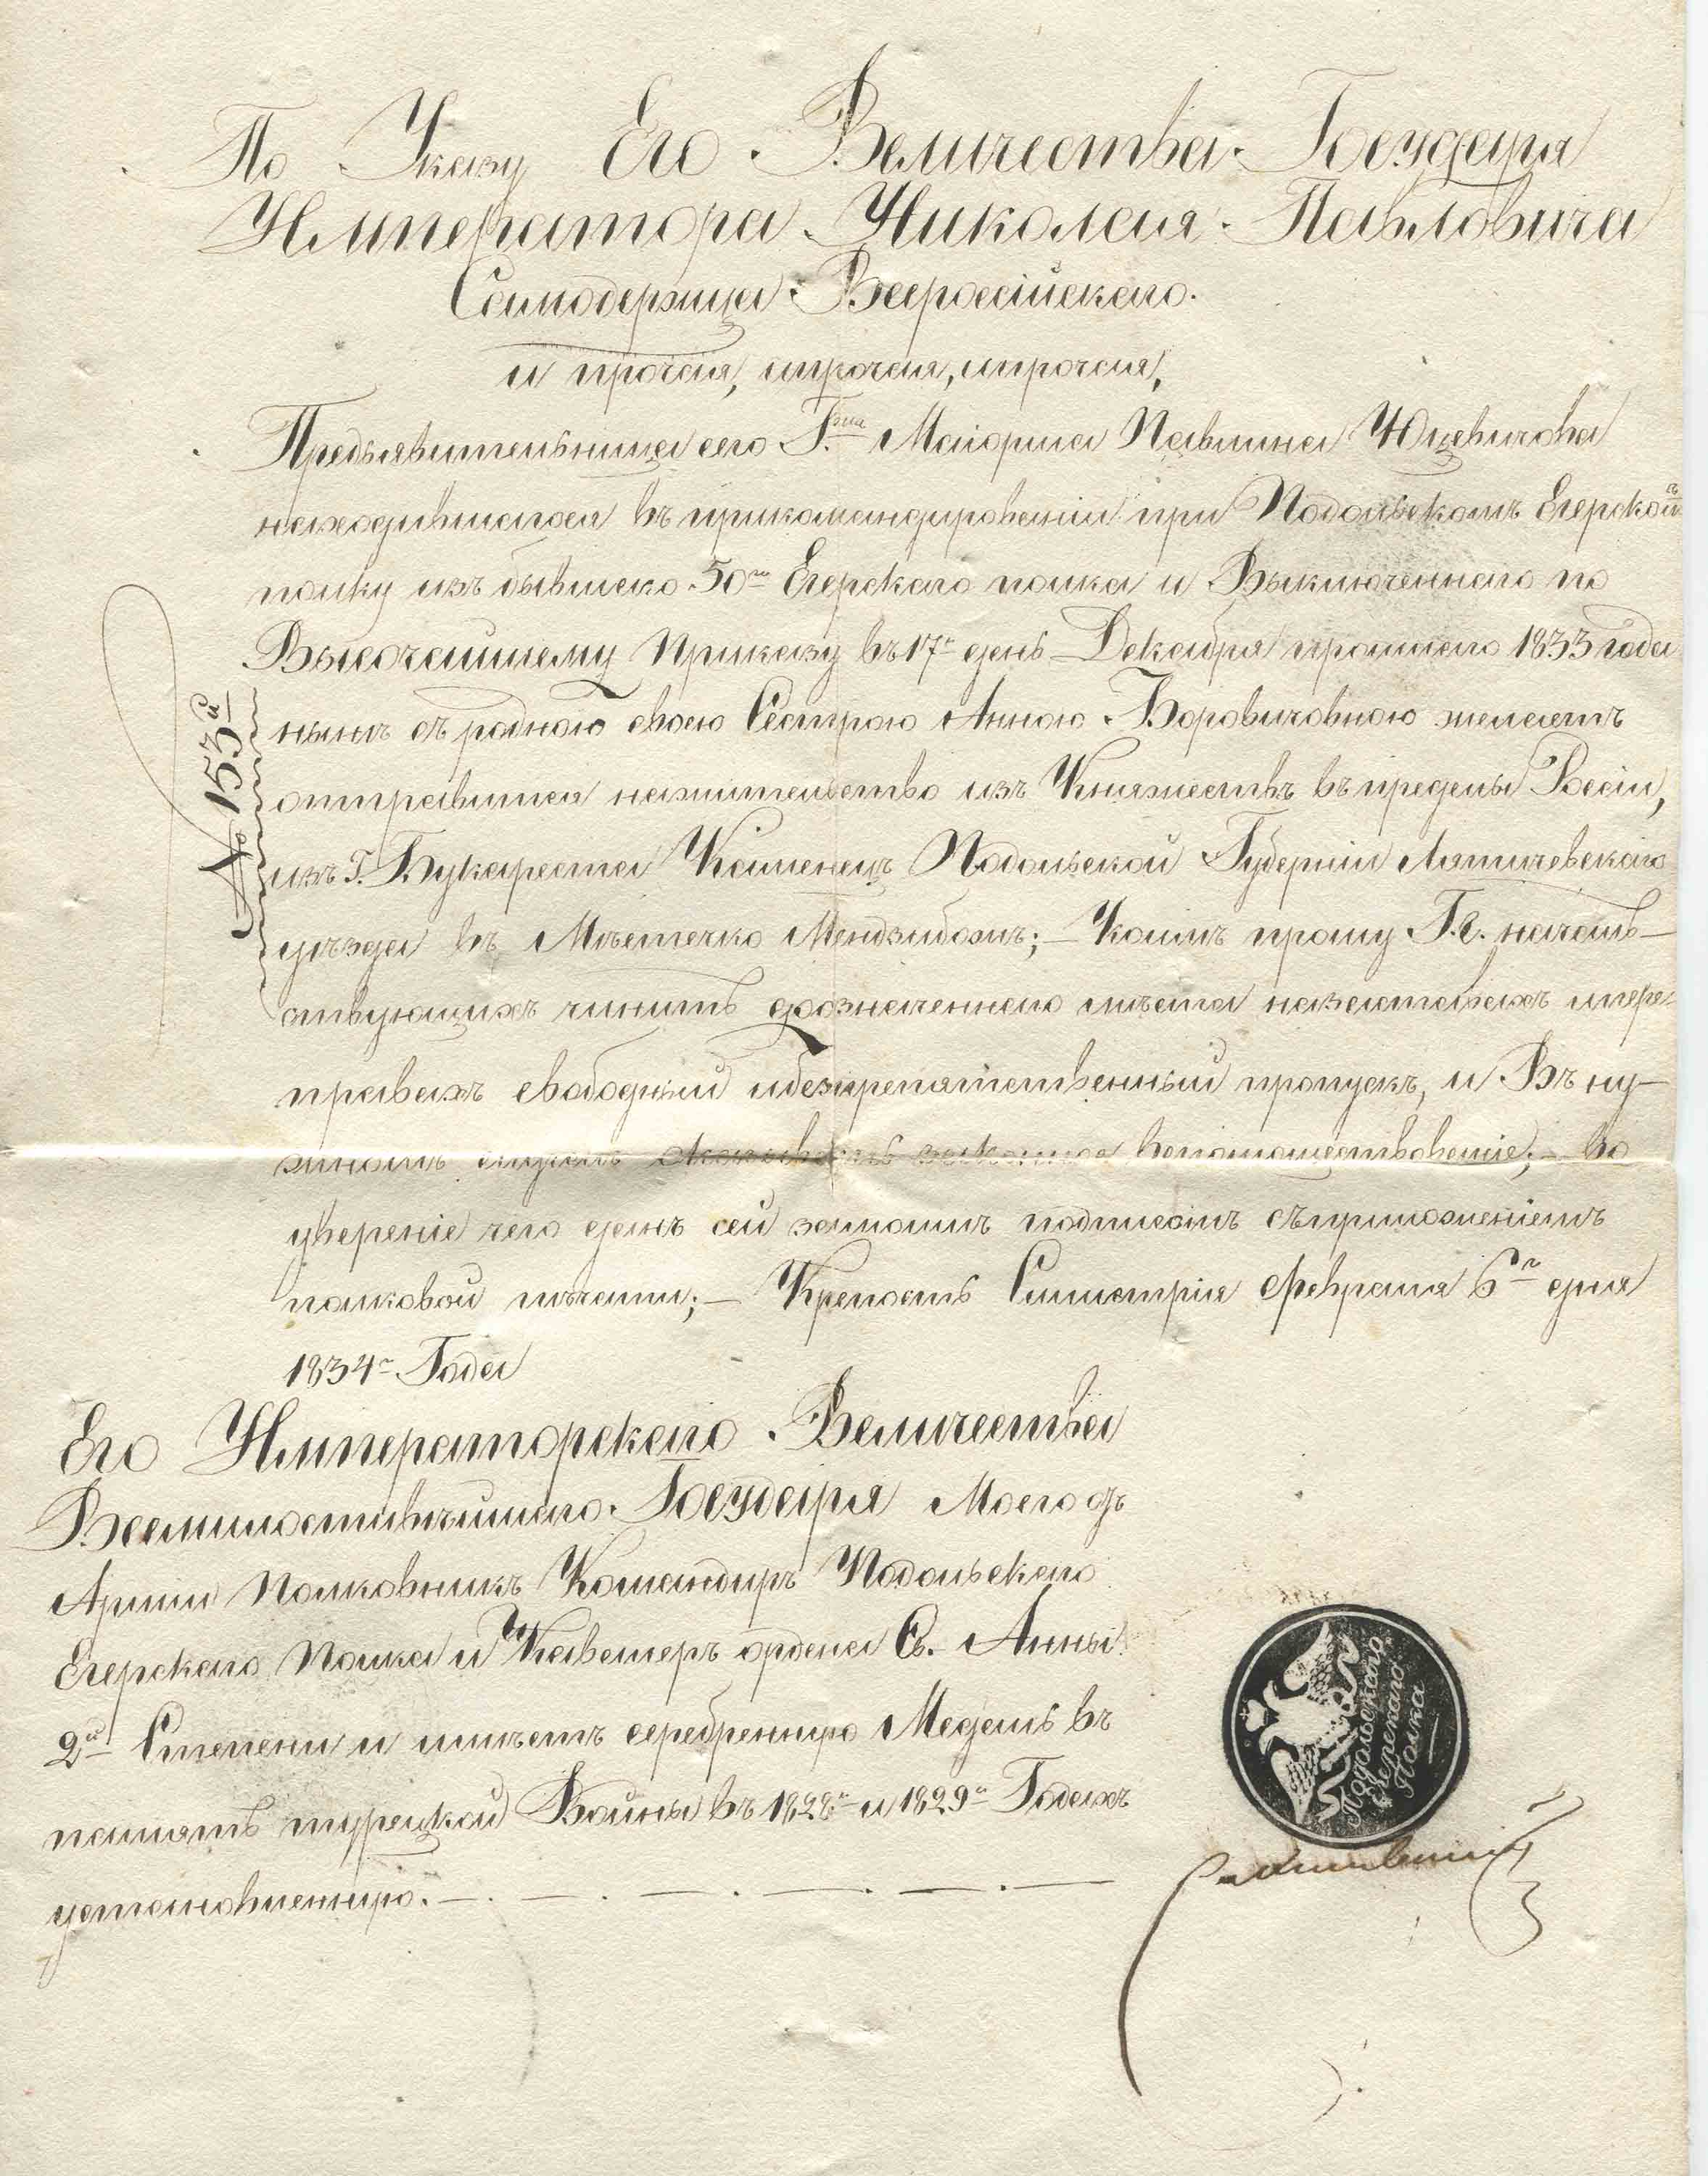 По Указу Его Величества Государя
Императора Николая Павловича
Самодержца Всероссійскаго.
и прочая, ипрочая, ипрочая,
Предъявительница сего Г.жа Маіорша Павлина Юцевичова
находившагося въ прикомандированіи при Подольскомъ Егерском
полку изъ бывшаго 50го Егерскаго полка и Выключеннаго по
Высочайшему Приказу въ 17й день Декабря прошлаго 1833 года
нынѣ съ родною своею Сестрою Анною Боровичовною желаетъ
отправится нажительство изъ Княжествъ въ пределы Россіи,
изъ Г. Букареста Каменецъ Подольской Губерніи Лятичевскаго
уѣзда въ Мѣстечко Мендзибожъ; — Коимъ прошу Г.г. началь—
ствующихъ чинить дозначеннаго мѣста назаставахъ ипере-
правахъ свободный ибезпрепятственный пропускъ, и Въ ну—
жномъ случаѣ оказывать законное вспомоществованіе; — Во
увереніе чего данъ сей замоимъ подписомъ съприложеніемъ
полковой печати; — Крепость Силистрія Февраля 6го дня
1834го Года
Его Императорскаго Величества
Всемилостивѣйшаго Государя Моего отъ
Арміи Полковникъ Командиръ Подольскаго
Егерскаго Полка и Кавалеръ ордена Св. Анны
2й Степени и имѣетъ серебренную Медаль въ
память турецкой Войны въ 1828м и 1829м Годахъ
установленную. —
№ 153й
Подольскаго
Егерскаго
Полка